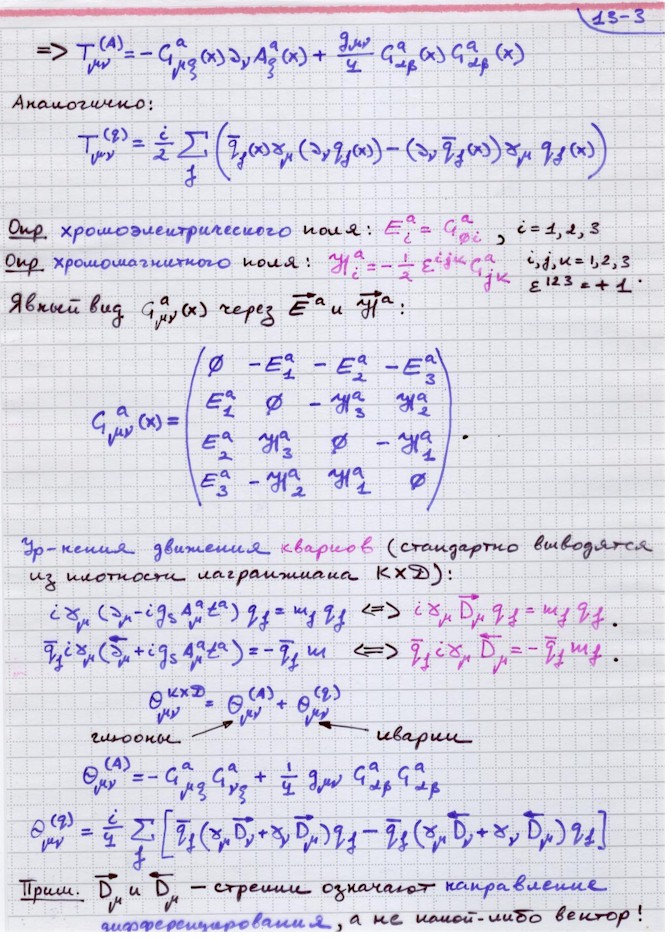 13-3
=> T_{μν}^{(A)} = - G_{μξ}^a(x) ∂_ν A_ξ^a(x) + \frac{g_{μν}}{4} G_{αβ}^a(x) G_{αβ}^a(x)
Аналогично:
T_{μν}^{(q)} = \frac{i}{2} Σ_f ( \bar{q}_f(x) γ_μ (∂_ν q_f(x)) - (∂_ν \bar{q}_f(x)) γ_μ q_f(x) )
Опр хромоэлектрического поля: E_i^a = G_{0i}^a, i = 1, 2, 3
Опр хромомагнитного поля: ℋ_i^a = - \frac{1}{2} ε^{ijk} G_{jk}^a i, j, k = 1, 2, 3
ε^{123} = +1.
Явный вид G_{μν}^a(x) через \vec{E}^a и \vec{ℋ}^a:
G_{μν}^a(x) = ( 0 -E_1^a -E_2^a -E_3^a
E_1^a 0 -ℋ_3^a ℋ_2^a
E_2^a ℋ_3^a 0 -ℋ_1^a
E_3^a -ℋ_2^a ℋ_1^a 0 ).
Ур-нения движения кварков (стандартно выводятся
из плотности лагранжиана КХД):
iγ_μ (∂_μ - ig_s A_μ^a t^a) q_f = m_f q_f <=> iγ_μ \vec{D}_μ q_f = m_f q_f.
\bar{q}_f iγ_μ (\overleftarrow{∂}_μ + ig_s A_μ^a t^a) = - \bar{q}_f m <=> \bar{q}_f iγ_μ \overleftarrow{D}_μ = - \bar{q}_f m_f.
Θ_{μν}^{КХД} = Θ_{μν}^{(A)} + Θ_{μν}^{(q)}
глюоны кварки
Θ_{μν}^{(A)} = - G_{μξ}^a G_{νξ}^a + \frac{1}{4} g_{μν} G_{αβ}^a G_{αβ}^a
Θ_{μν}^{(q)} = \frac{i}{4} Σ_f [ \bar{q}_f (γ_μ \vec{D}_ν + γ_ν \vec{D}_μ) q_f - \bar{q}_f (γ_μ \overleftarrow{D}_ν + γ_ν \overleftarrow{D}_μ) q_f ]
Прим. \vec{D}_μ и \overleftarrow{D}_μ – стрелки означают направление
дифференцирования, а не какой-либо вектор!